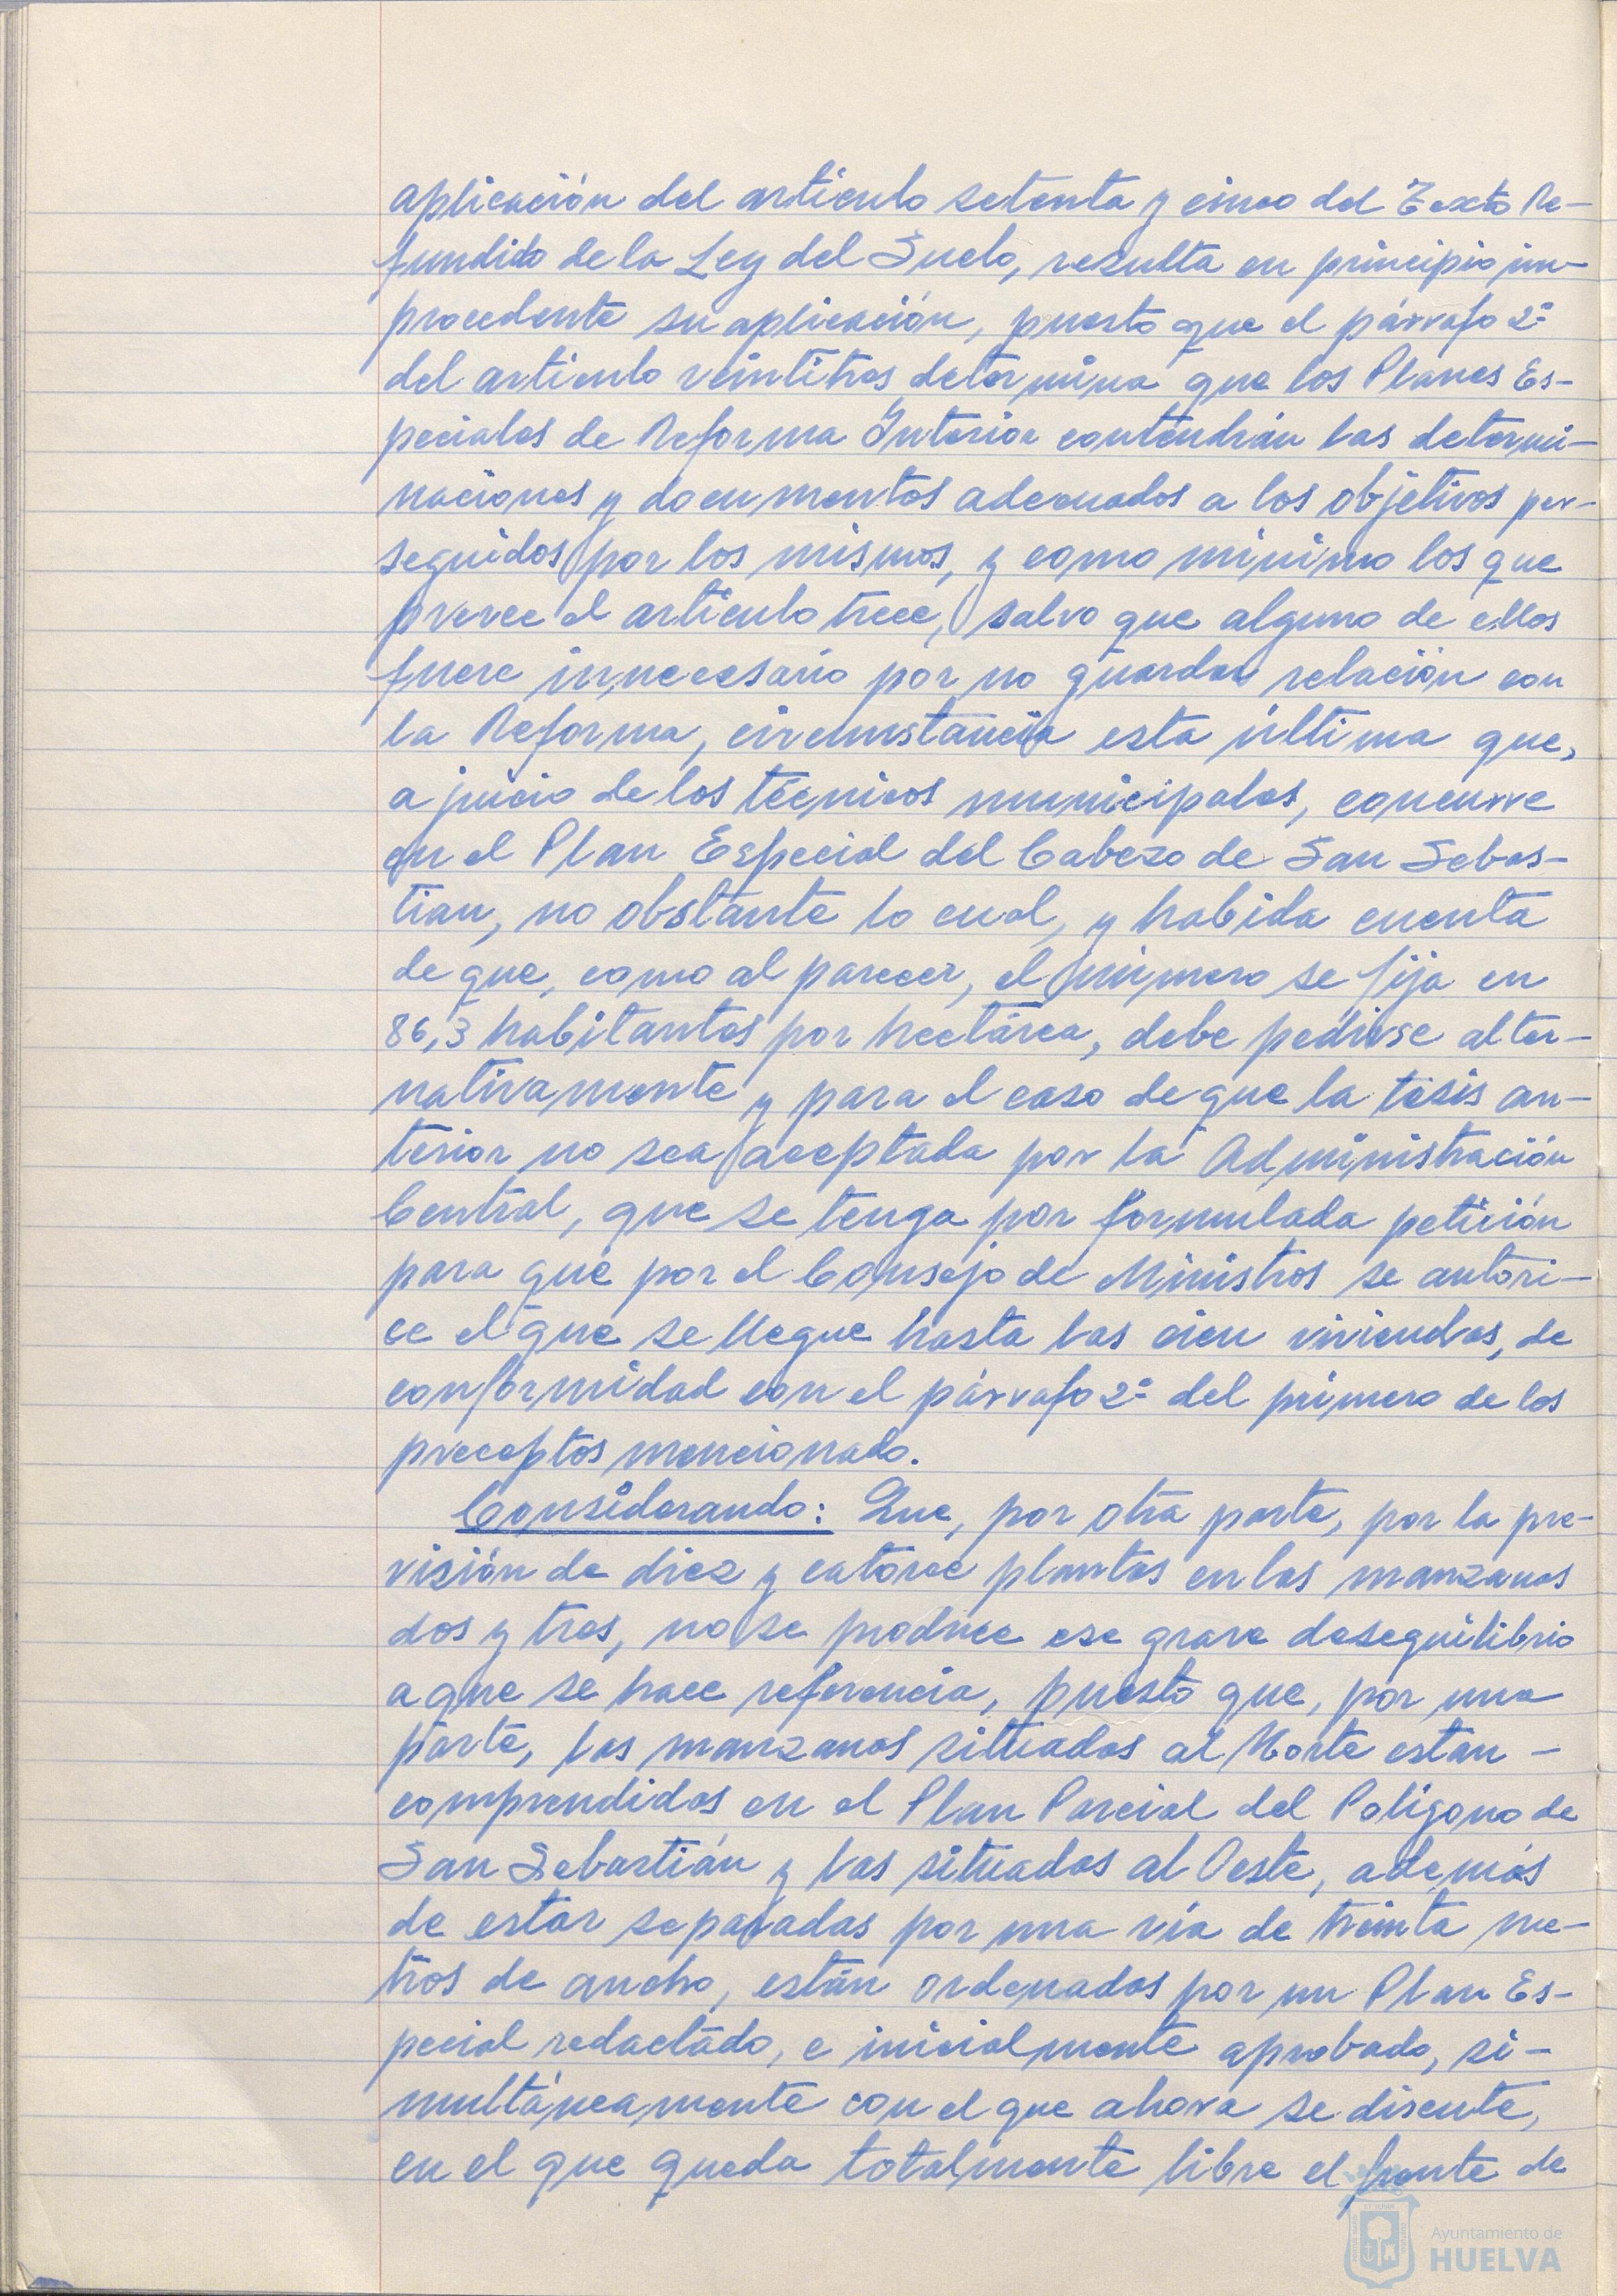 aplicación del articulo setenta y cinco del Texto Re-
fundido de la Ley del Suelo, resulta en principio im-
procedente su aplicación, puesto que el párrafo 2º
del articulo veintitres, determina que los Planes Es-
peciales de Reforma Interior contendrán las determi-
naciones y documentos adecuados a los objetivos per-
seguidos por los mismos, y como minimo los que
prevee el articulo trece, salvo que alguno de ellos
fuere innecesario por no guardar relación con
la Reforma, circunstancia esta última que,
a juicio de los técnicos municipales, concurre
en el Plan Especial del Cabezo de San Sebas-
tian, no obstante lo cual, y habida cuenta
de que, como al parecer, el número se fija en
86,3 habitantes por hectárea, debe pedirse alter-
nativamente y para el caso de que la tesis an-
terior no sea aceptada por la Administración
Central, que se tenga por formulada petición
para que por el Consejo de Ministros se autori-
ce el que se llegue hasta las cien viviendas, de
conformidad con el párrafo 2º del primero de los
preceptos mencionado.
Considerando: Que, por otra parte, por la pre-
visión de diez y catorce plantas en las manzanas
dos y tres, no se produce ese grave desequilibrio
a que se hace referencia, puesto que, por una
parte, las manzanas situadas al Norte estan -
comprendidas en el Plan Parcial del Poligono de
San Sebastián y las situadas al Oeste, además
de estar separadas por una vía de treinta me-
tros de ancho, están ordenadas por un Plan Es-
pecial redactado, e inicialmente aprobado, si-
multáneamente con el que ahora se discute,
en el que queda totalmente libre el frente de
Ayuntamiento de
HUELVA